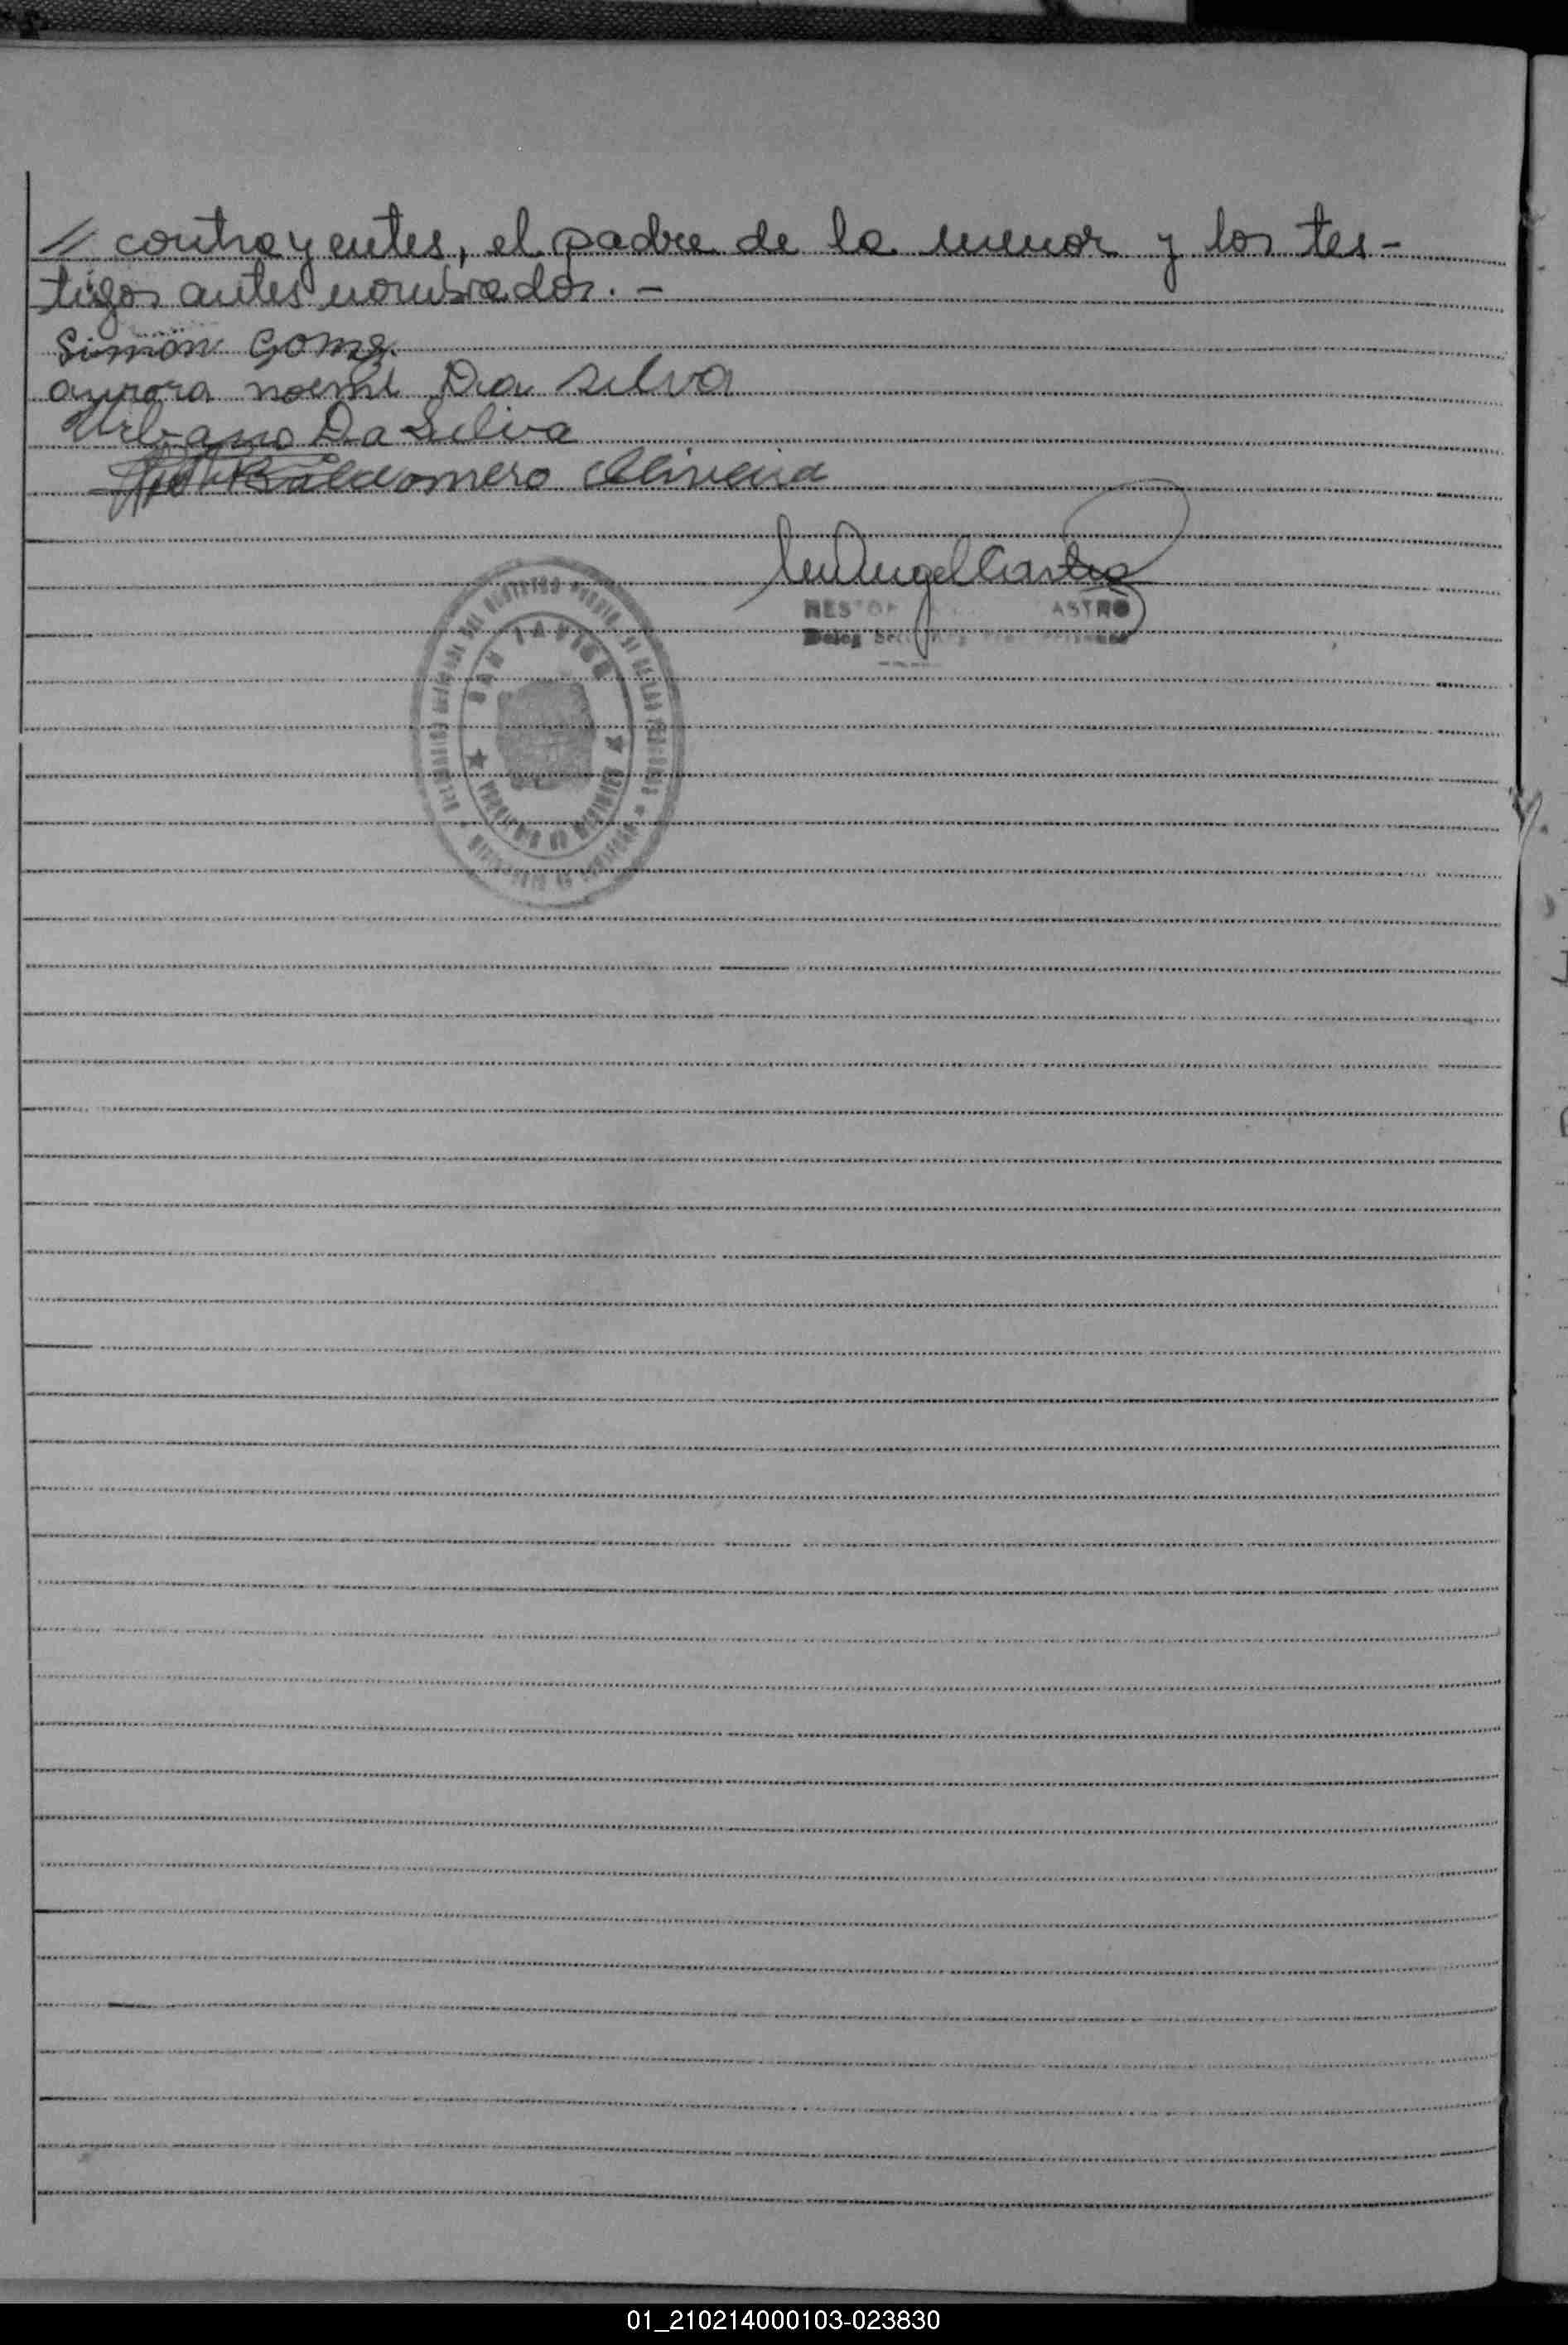 // contrayentes, el padre de la menor y los tes-
tigos antes nombrados. -
Simón Gomez
aurora noemi Da silva
Urbano Da Silva
Baldomero Oliveira
Angel Castro
NESTOR ASTRO
SAN JAVIER
01_210214000103-023830